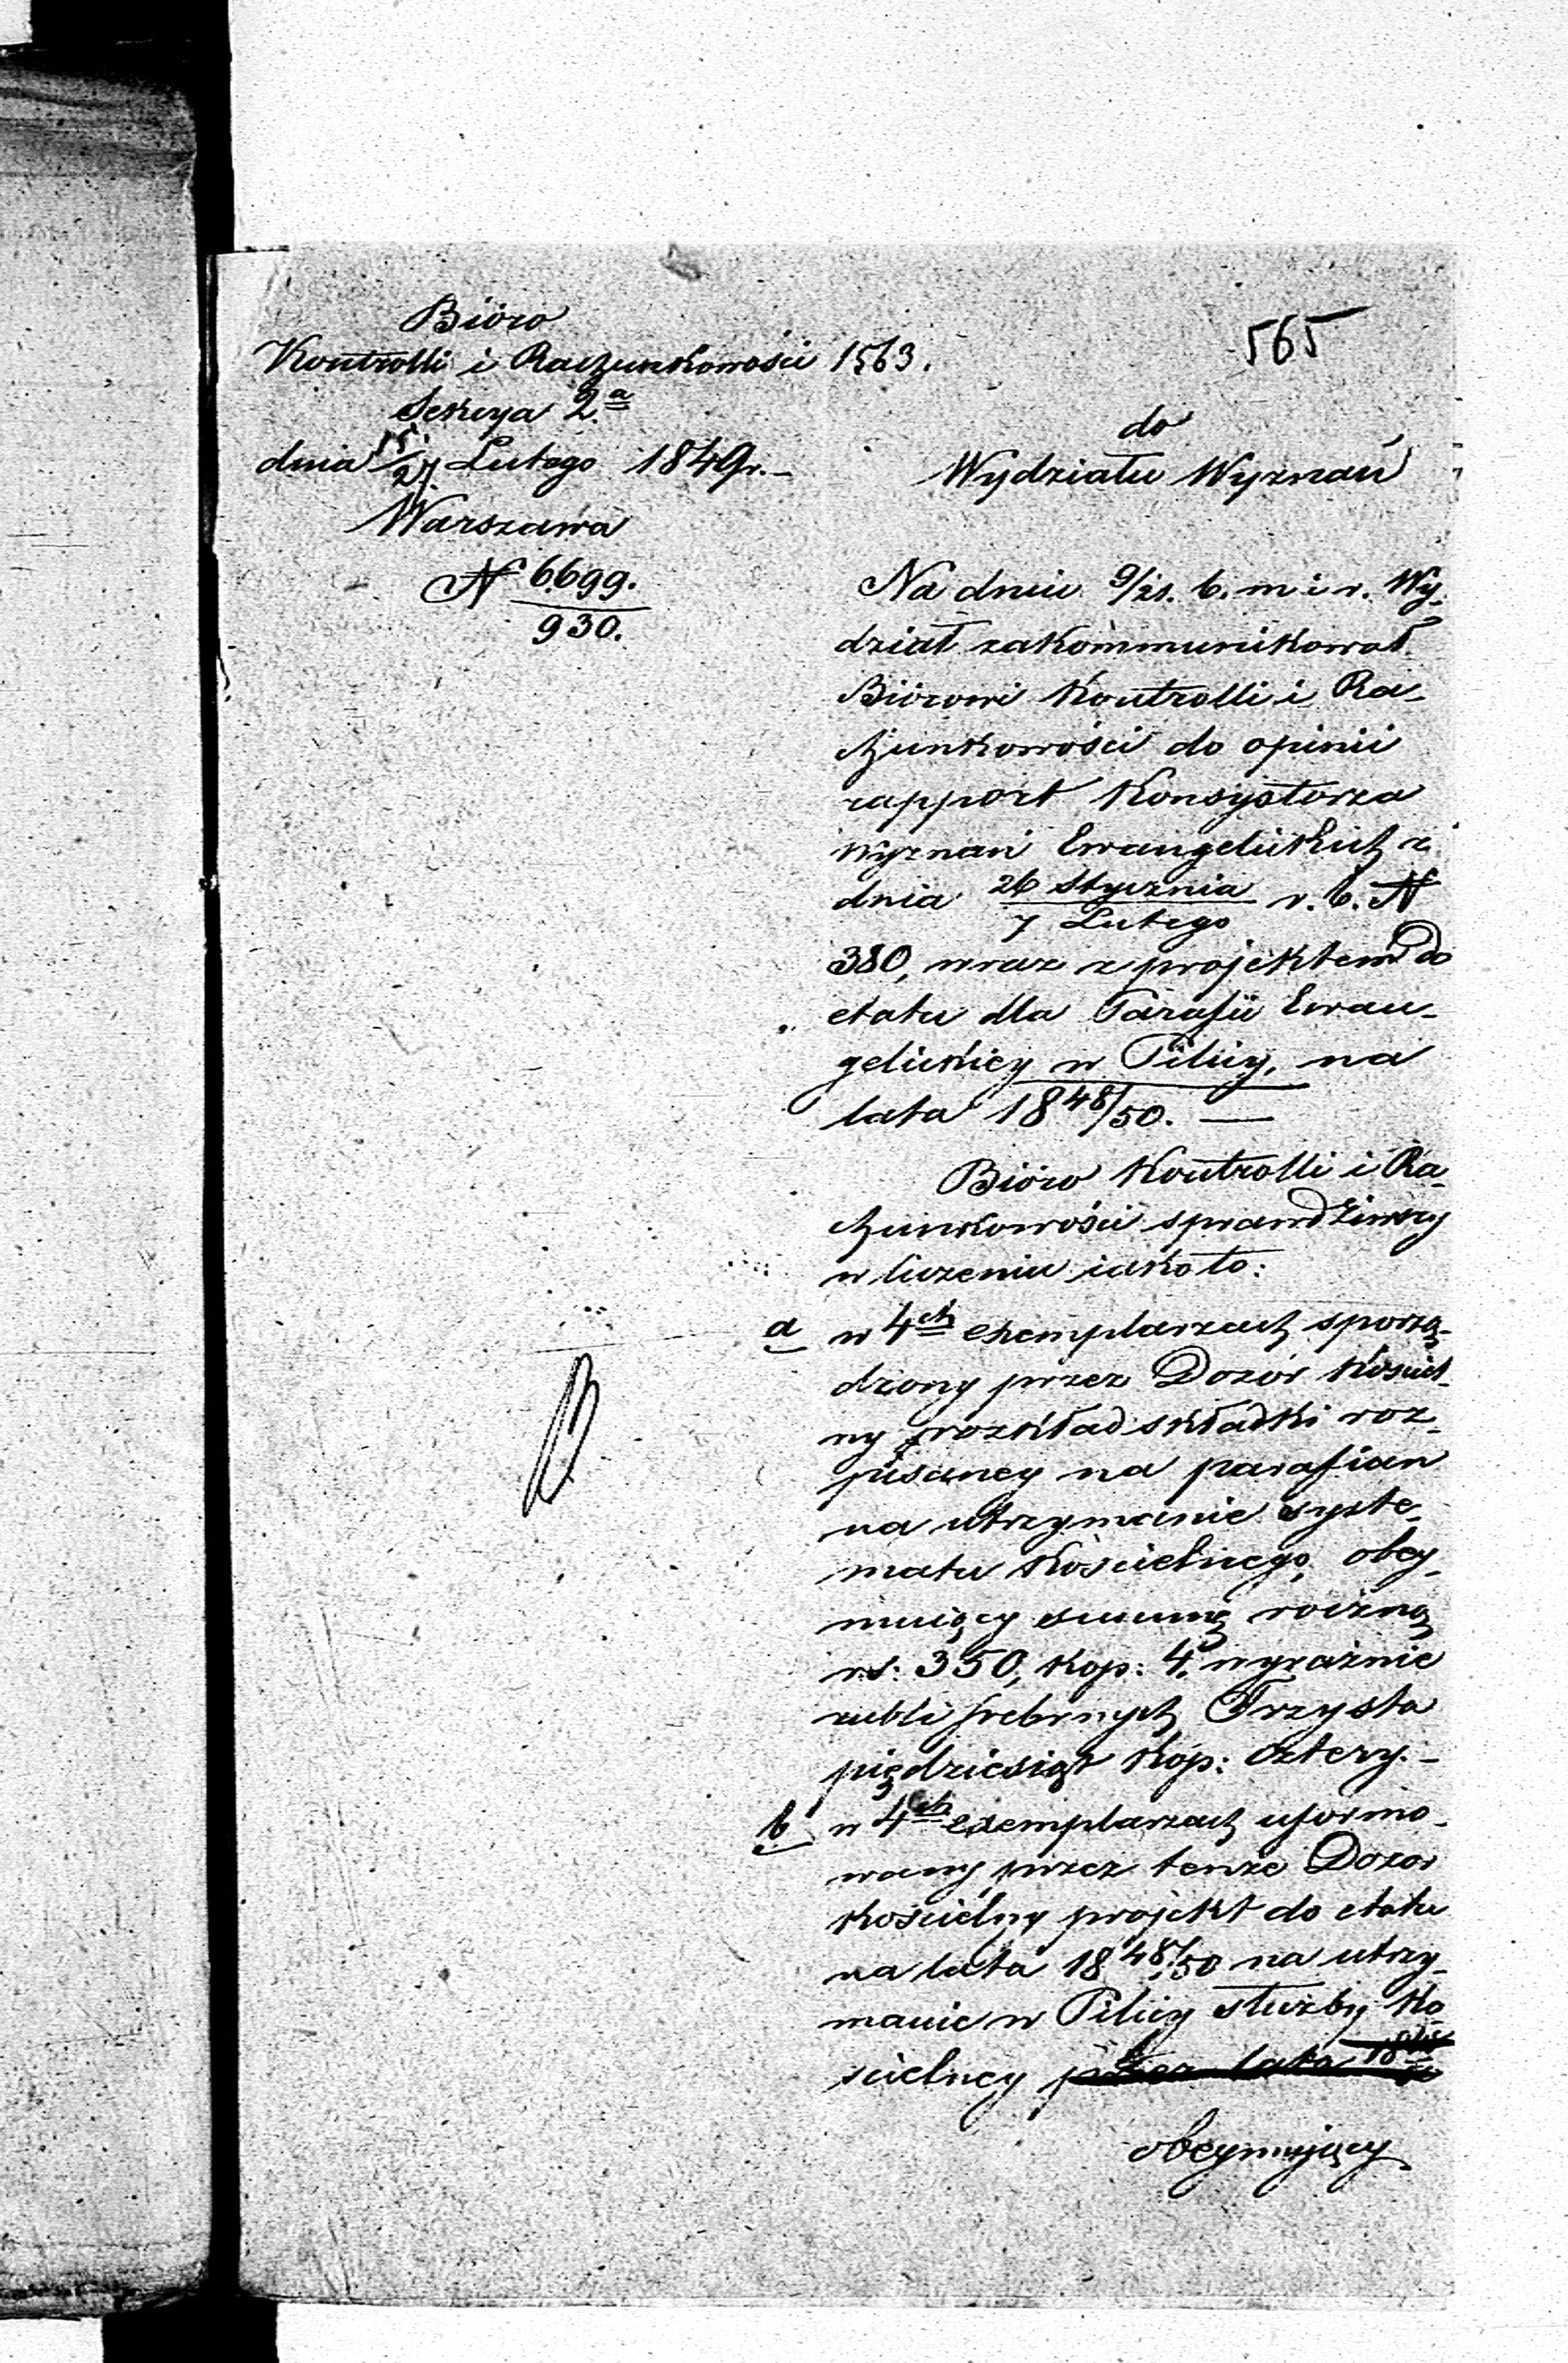 Bióro
Kontrolli i Raczunkowości 1563.
Sekcya 2.a
dnia 15/27 Lutego 1849r.
Warszawa
N 6699.
930.
565
do
Wydziału Wyznań
Na dniu 9/21. b. m i r. Wy-
dział zakommunikował
Biórowi Kontrolli i Ra-
chunkowości do opinii
rapport Konsystorza
Wyznań Ewangelickich z
dnia 26 Stycznia / 7 Lutego r. b. N
380, wraz z projektem do
etatu dla Parafii Ewan-
gelickiey w Pilicy, na
lata 1848/50. —
Bióro Kontrolli i Ra-
chunkowości sprawdziwszy
w liczeniu iako to:
a w 4ch exemplarzach sporzą-
dzony przez Dozór Kościel-
ny rozkład składki roz-
pisaney na parafian
na utrzymanie syste-
matu Kościelnego, obey-
muiący summę roczną
rs: 350, kop: 4. wyraźnie
rubli srebrnych Trzysta
pięćdziesiąt kop: cztery. —
b w 4ch exemplarzach uformo-
wany przez tenże Dozór
Kościelny projekt do etatu
na lata 1848/50 na utrzy-
manie w Pilicy służby Ko-
ścielney przez lata 1848/50
obeymujący